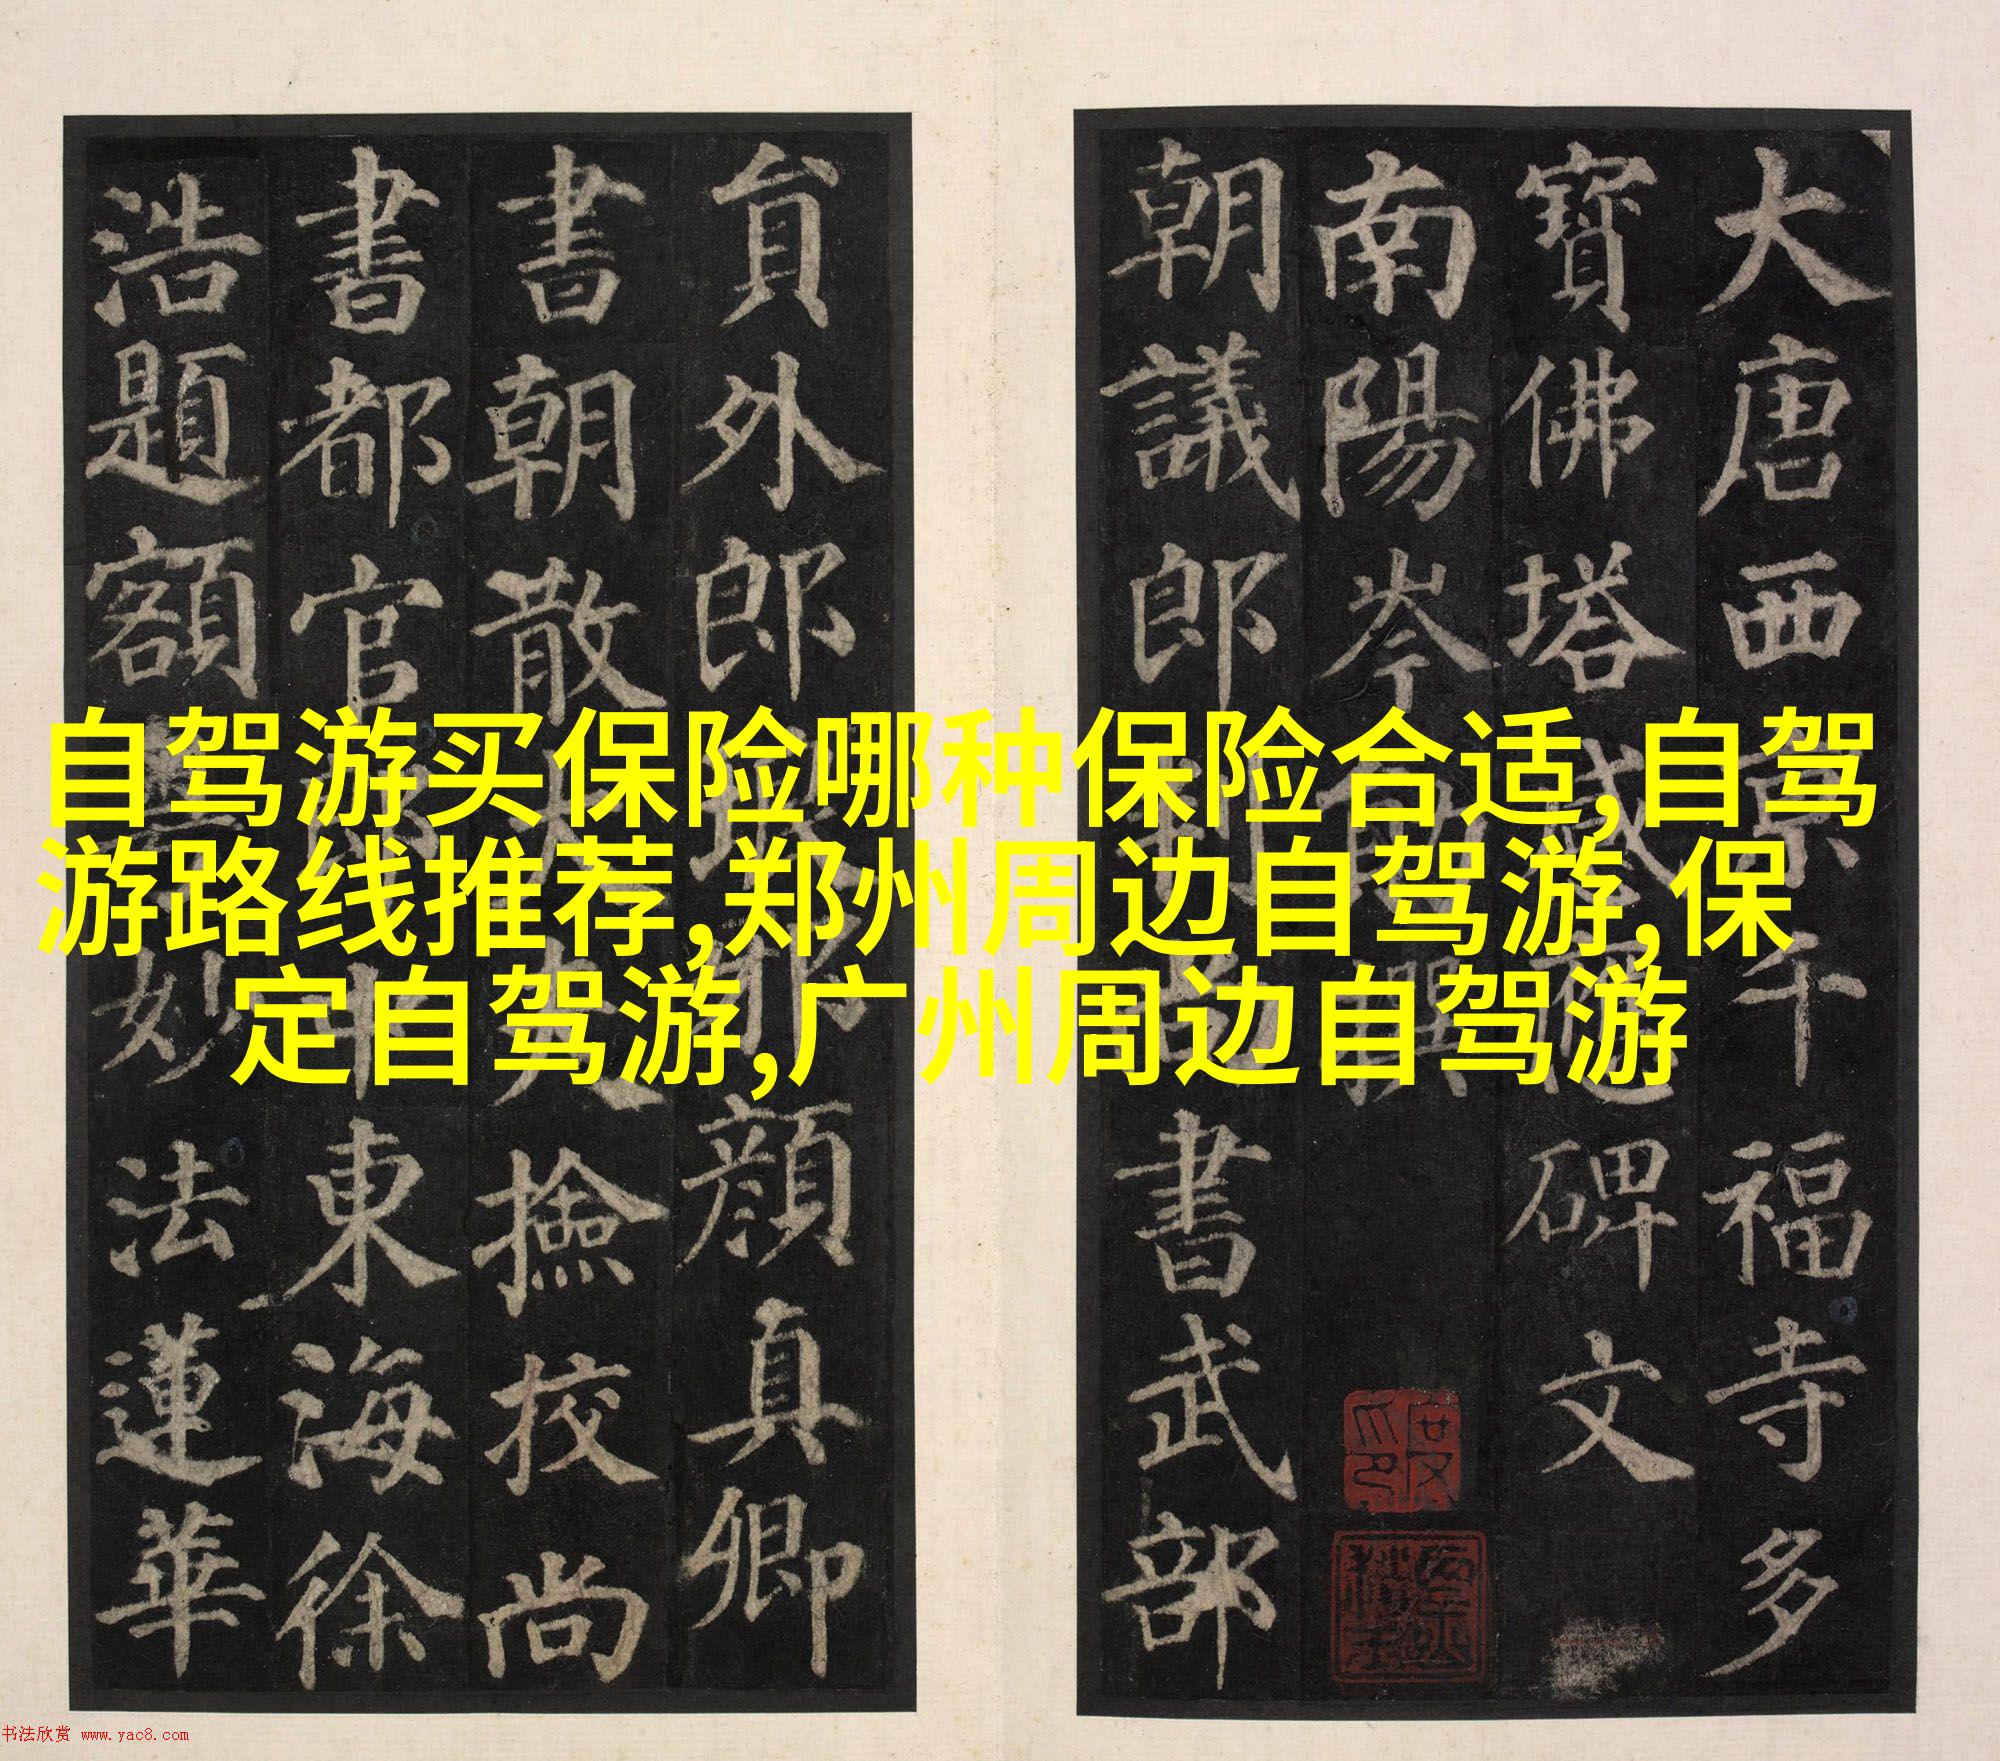 自驾游买保险哪种保险合适,自驾
游路线推荐,郑州周边自驾游,保
定自驾游,广州周边自驾游
大唐西京千福寺多
寶佛塔感應碑文
南陽岑勛撰
朝議郎判尚書武部
貟外郎琅邪顏真卿
書朝散大夫撿校尚
書都官郎中東海徐
浩題額粵妙法蓮華
书法欣赏 www.yac8.com